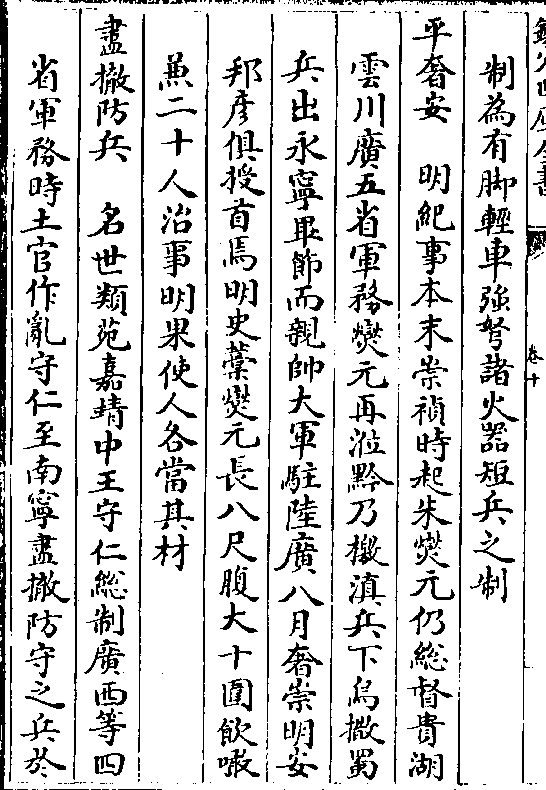 制為有脚輕車強弩諸火器短兵之制
平奢安　明紀事本末崇禎時起朱燮元仍総督貴湖
雲川廣五省軍務燮元再涖黔乃檄滇兵下烏撒蜀
兵出永寧畢節而親帥大軍駐陸廣八月奢崇明安
邦彦俱授首焉明史藁燮元長八尺腹大十圍飲啖
兼二十人治事明果使人各當其材
盡撤防兵　名世類苑嘉靖中王守仁総制廣西等四
省軍務時土官作亂守仁至南寧盡撤防守之兵於
卷十